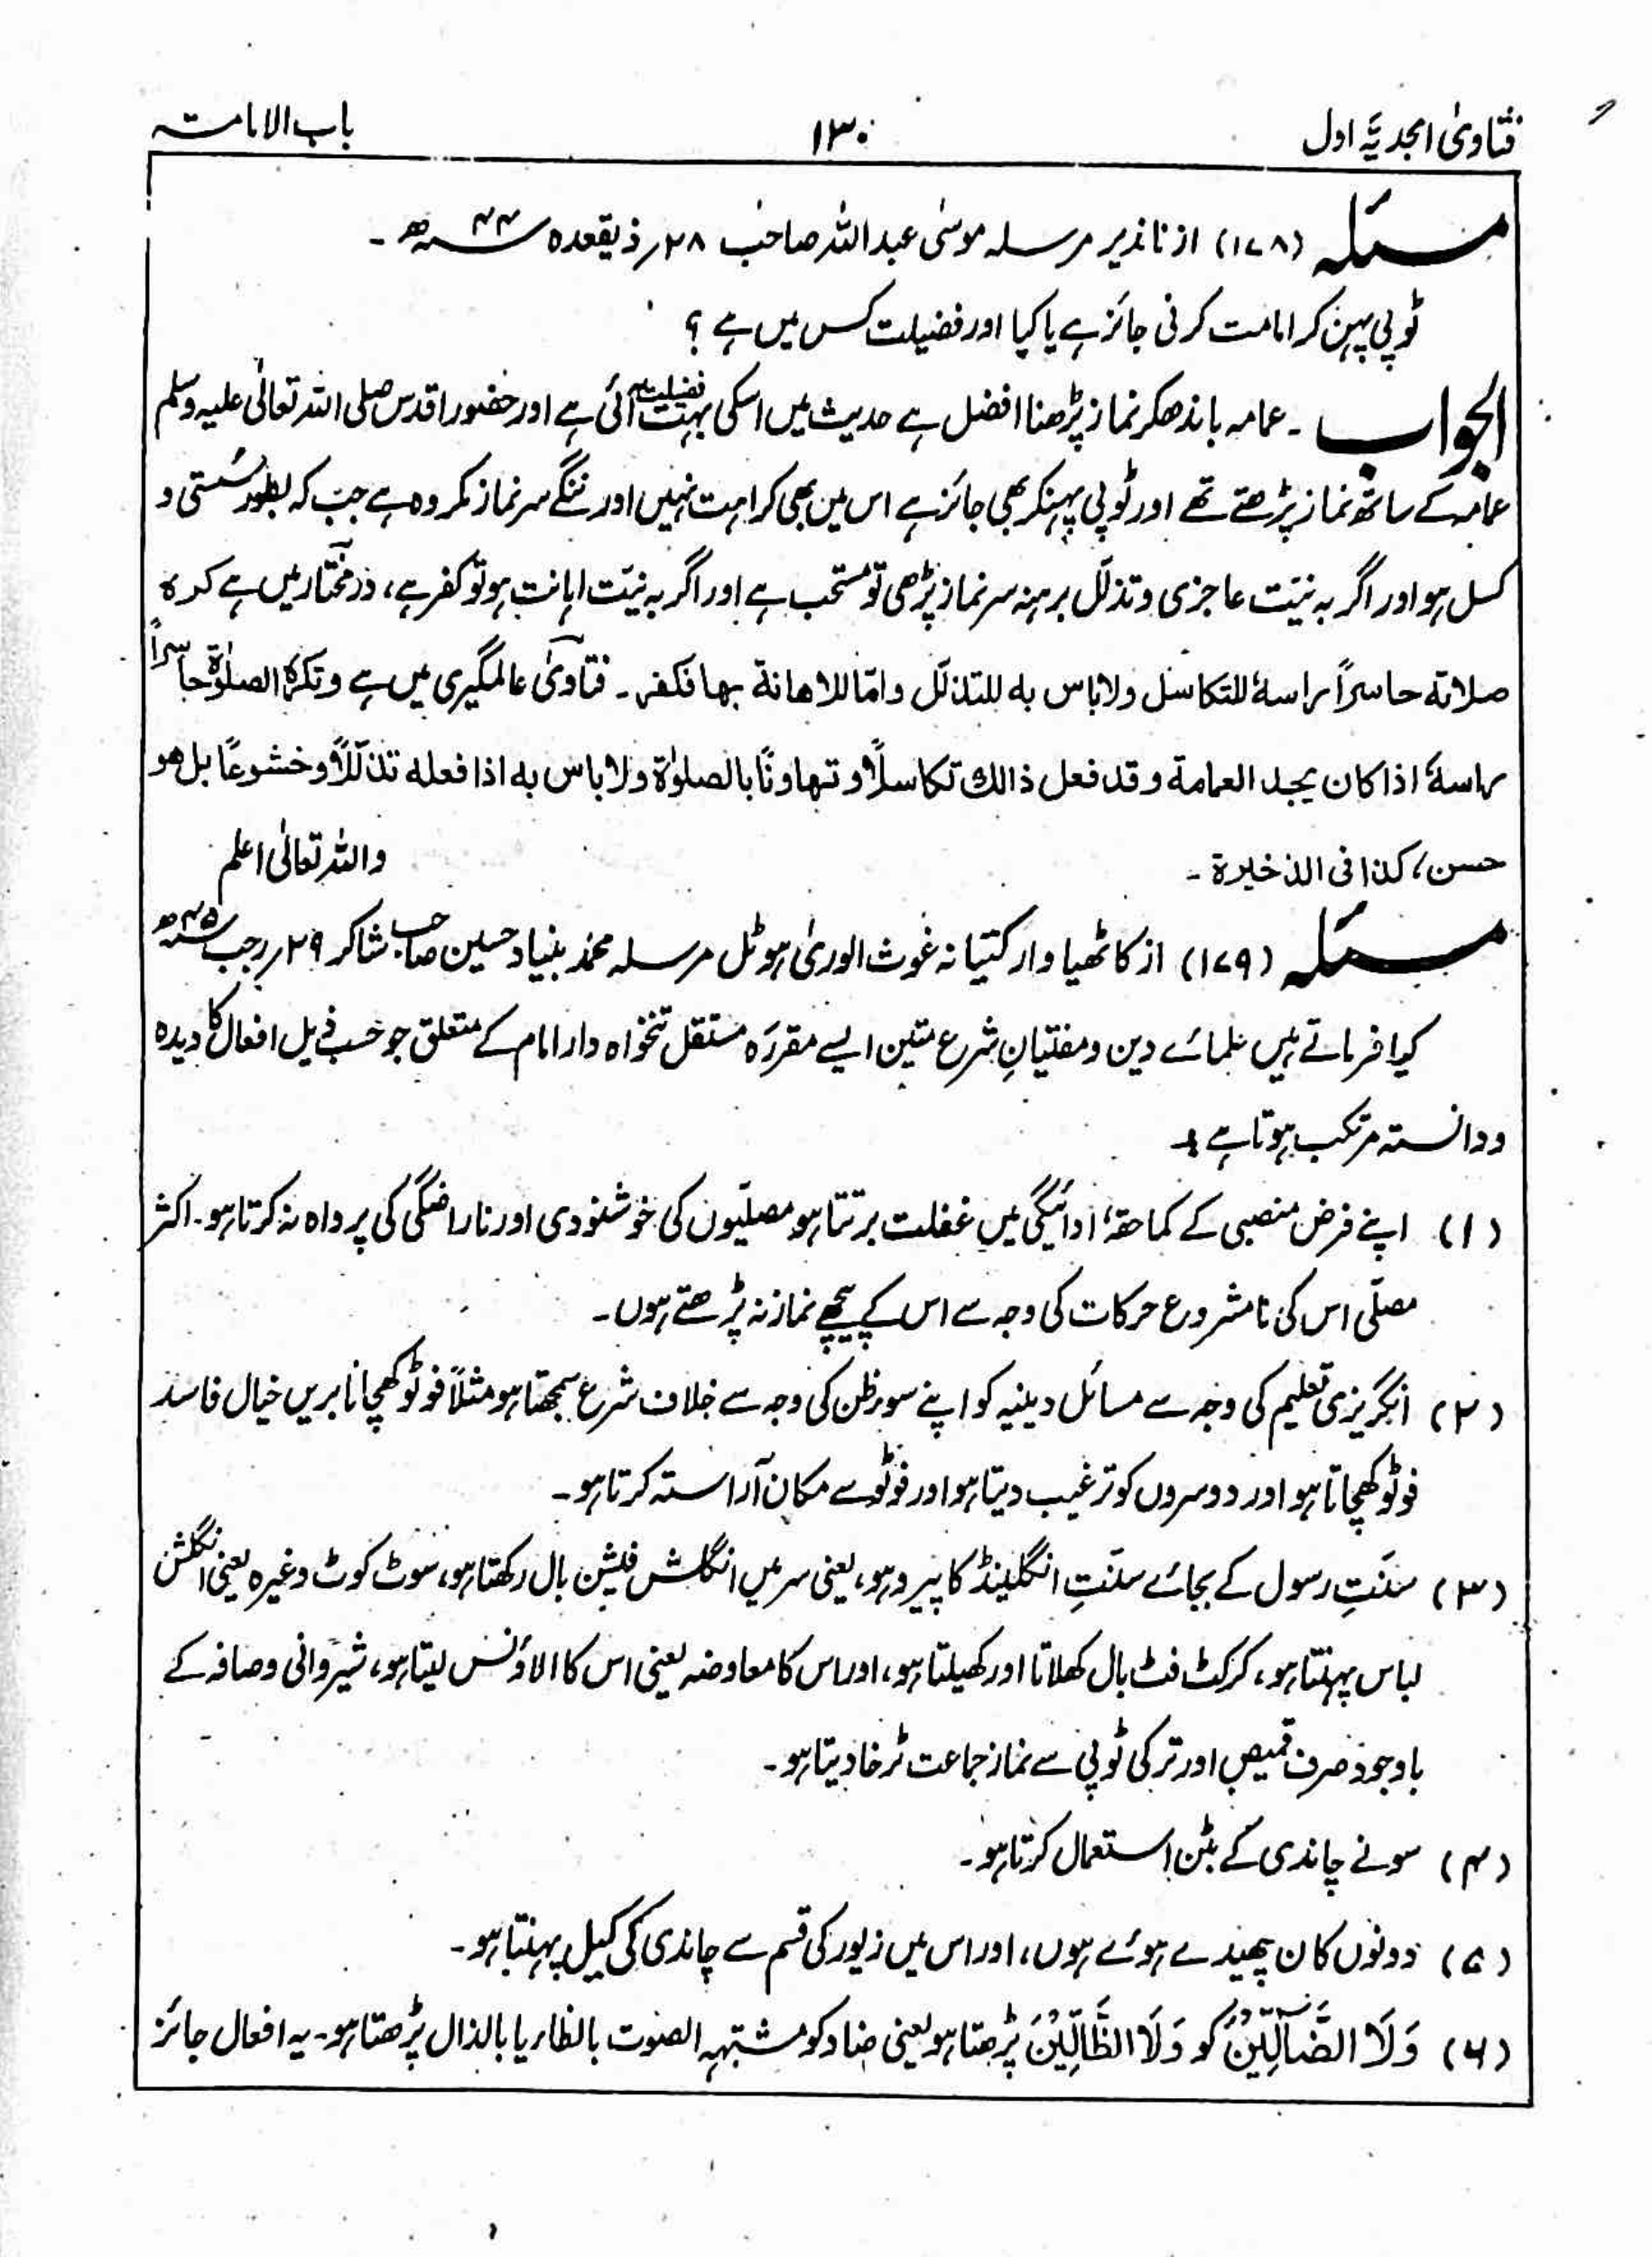 فتاویٰ امجدیہ اول ۱۳۰ باب الامامت
مسئلہ (۱۷۸) از ناندیر مرسلہ موسیٰ عبداللہ صاحب ۲۸؍ ذیقعدہ ۴۴ سنہ ھ ۔
ٹوپی پہن کر امامت کرنی جائز ہے یا کیا اور فضیلت کس میں ہے ؟
الجواب ۔ عمامہ باندھکر نماز پڑھنا افضل ہے حدیث میں اسکی بہت فضیلت آئی ہے اور حضور اقدس صلی اللہ تعالیٰ علیہ وسلم
عمامہ کے ساتھ نماز پڑھتے تھے اور ٹوپی پہنکر بھی جائز ہے اس میں بھی کراہت نہیں اور ننگے سر نماز مکروہ ہے جب کہ بطور سُستی و
کسل ہو اور اگر بہ نیّت عاجزی و تذلّل برہنہ سر نماز پڑھی تو مستحب ہے اور اگر بہ نیّت اہانت ہو تو کفر ہے، درمختار میں ہے کرہ
صلاتہ حاسراً راسہٗ للتکاسل ولاباس بہ للتذلّل وامّا للاھانۃ بھا فکفر ۔ فتاویٰ عالمگیری میں ہے وتکرہ الصلوٰۃ حاسراً
راسہٗ اذا کان یجد العمامۃ وقد فعل ذالک تکاسلاً وتھاونًا بالصلوٰۃ ولاباس بہ اذا فعلہ تذلّلاً وخشوعًا بل ھو
حسن، کذا فی الذخیرۃ ۔ واللہ تعالیٰ اعلم
مسئلہ (۱۷۹) از کاٹھیاوار کتیانہ غوث الوریٰ ہوٹل مرسلہ محمد بنیاد حسین صاحب شاکر ۲۹؍ رجب ۴۵ سنہ ھ
کیا فرماتے ہیں علمائے دین و مفتیانِ شرع متین ایسے مقررہ مستقل تنخواہ دار امام کے متعلق جو حسب ذیل افعال کا دیدہ
و دانستہ مرتکب ہوتا ہے ۔
(۱) اپنے فرض منصبی کے کماحقہٗ ادائیگی میں غفلت برتتا ہو مصلّیوں کی خوشنودی اور ناراضگی کی پرواہ نہ کرتا ہو۔ اکثر
مصلّی اس کی نامشروع حرکات کی وجہ سے اس کے پیچھے نماز نہ پڑھتے ہوں ۔
(۲) انگریزی تعلیم کی وجہ سے مسائل دینیہ کو اپنے سوء ظن کی وجہ سے خلاف شرع سمجھتا ہو مثلاً فوٹو کھچانا بریں خیال فاسد
فوٹو کھچاتا ہو اور دوسروں کو ترغیب دیتا ہو اور فوٹو سے مکان آراستہ کرتا ہو ۔
(۳) سنّتِ رسول کے بجائے سنّتِ انگلینڈ کا پیرو ہو، یعنی سر میں انگلش فیشن بال رکھتا ہو، سوٹ کوٹ وغیرہ یعنی انگلش
لباس پہنتا ہو، کرکٹ فٹ بال کھلاتا اور کھیلتا ہو، اور اس کا معاوضہ یعنی اس کا الاؤنس لیتا ہو، شیروانی و صافہ کے
باوجود صرف قمیص اور ترکی ٹوپی سے نماز جماعت ٹرخا دیتا ہو ۔
(۴) سونے چاندی کے بٹن استعمال کرتا ہو ۔
(۵) دونوں کان چھیدے ہوئے ہوں، اور اس میں زیور کی قسم سے چاندی کی کیل پہنتا ہو ۔
(۶) وَلَا الضَّآلِّیْنَ کو وَلَا الظَّالِّیْنَ پڑھتا ہو یعنی ضاد کو مشتبہہ الصوت بالظاء یا بالذال پڑھتا ہو ۔ یہ افعال جائز